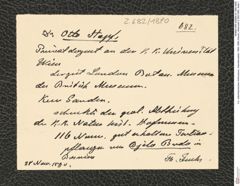 Z.682/1890
682.
Dr Otto Stapf,
Privatdozent an der K. K. Universität
Wien
derzeit London Botan. Museum
der British Museum.
Kew Garden.
schenkt der geol. Abtheilung
des K. K. Natur hist. Hofmuseum
116 Num. gut erhalten Tertiär-
pflanzen von
Bosnien
28 Nov. 1890. Th. Fuchs